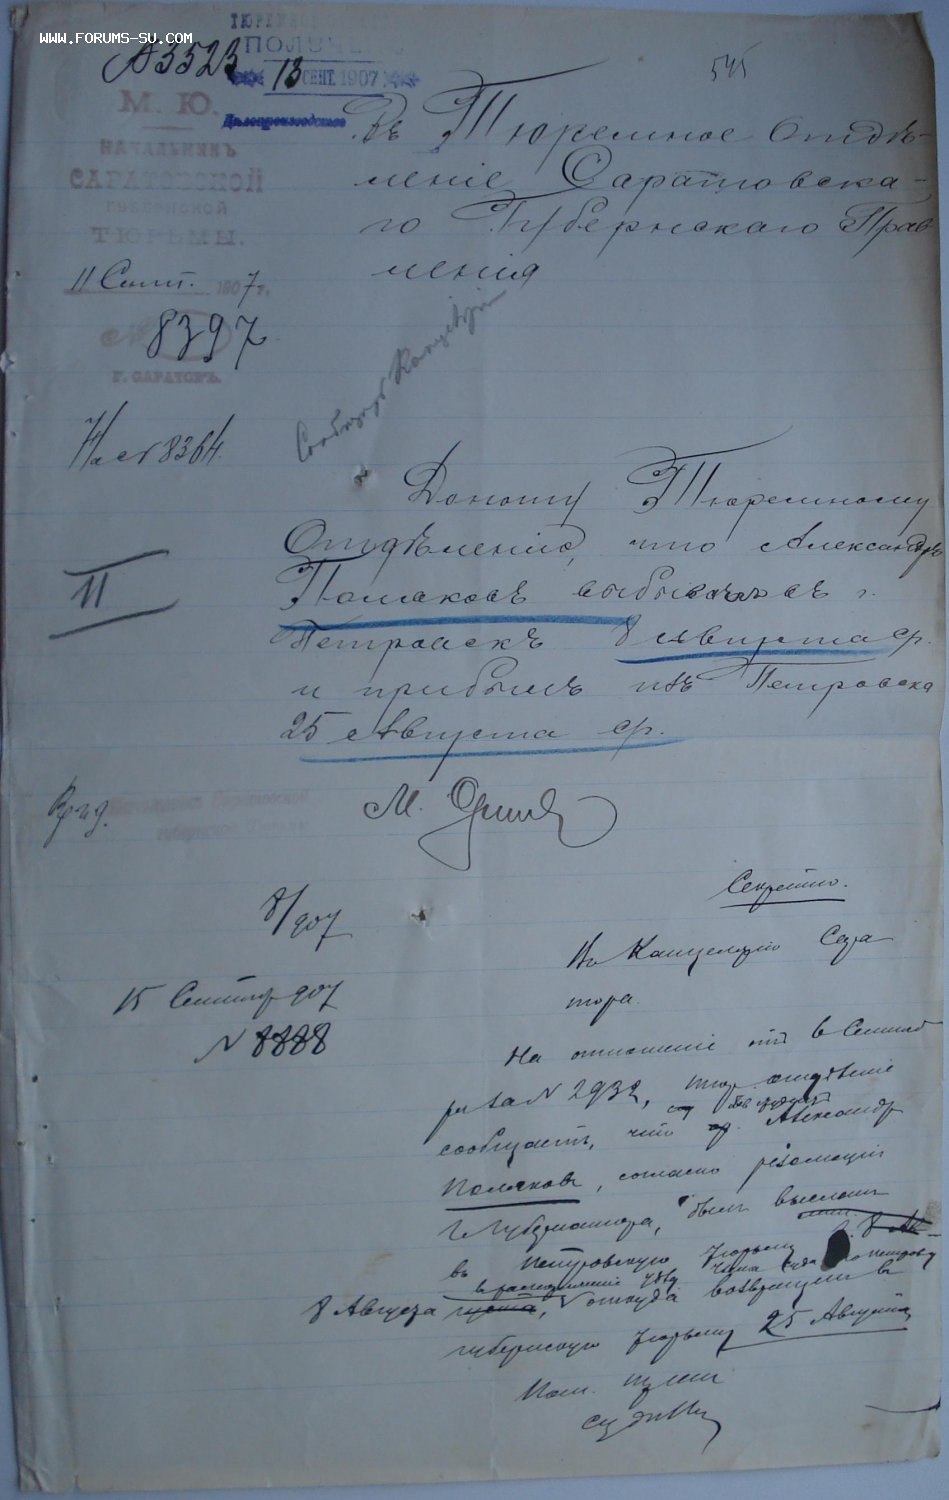 WWW.FORUMS-SU.COM
А3523
ПОЛУЧЕНО
13 СЕНТ. 1907
Дѣлопроизводство
545
М. Ю.
НАЧАЛЬНИКЪ
САРАТОВСКОЙ
ГУБЕРНСКОЙ
ТЮРЬМЫ.
11 Сент. 1907 г.
№ 8397
Г. САРАТОВЪ.
На № 8364.
Въ Тюремное Отдѣ-
леніе Саратовска-
го Губернскаго Прав
ленія
Сообщить
Доношу Тюремному
Отдѣленію, что Александръ
Поляковъ выбывалъ въ г.
Петровскъ 8 Августа ср.
и прибылъ изъ Петровска
25 Августа ср.
II
Начальника Саратовской
губернской тюрьмы
М.
8/907
15 907
№ 8888
Секретно.
Въ Канцелярію Сена
тора.
На отношеніе отъ 6 Сентяб
ря за № 2932, отдѣленіе
сообщаетъ, что Александр
Поляковъ, согласно резолюціи
Губернатора, былъ высланъ
въ Петровскую тюрьму
8 Августа откуда возвращенъ въ
губернскую тюрьму 25 Августа